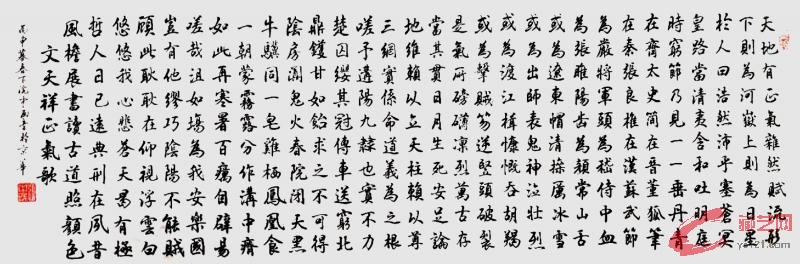 天地有正氣雜然賦流形
下則為河嶽上則為日星
於人曰浩然沛乎塞蒼冥
皇路當清夷含和吐明庭
時窮節乃見一一垂丹青
在齊太史簡在晉董狐筆
在秦張良椎在漢蘇武節
為嚴將軍頭為嵇侍中血
為張睢陽齒為顏常山舌
或為遼東帽清操厲冰雪
或為出師表鬼神泣壯烈
或為渡江楫慷慨吞胡羯
或為擊賊笏逆豎頭破裂
是氣所磅礴凛烈萬古存
當其貫日月生死安足論
地維賴以立天柱賴以尊
三綱實係命道義為之根
嗟予遘陽九隸也實不力
楚囚纓其冠傳車送窮北
鼎鑊甘如飴求之不可得
陰房闃鬼火春院閟天黑
牛驥同一皂雞棲鳳凰食
一朝蒙霧露分作溝中瘠
如此再寒暑百癘自辟易
嗟哉沮洳場為我安樂國
豈有他繆巧陰陽不能賊
顧此耿耿在仰視浮雲白
悠悠我心悲蒼天曷有極
哲人日已遠典刑在夙昔
風檐展書讀古道照顏色
文天祥正氣歌
申暮春下浣
書於京華
藏艺网
yz121.com